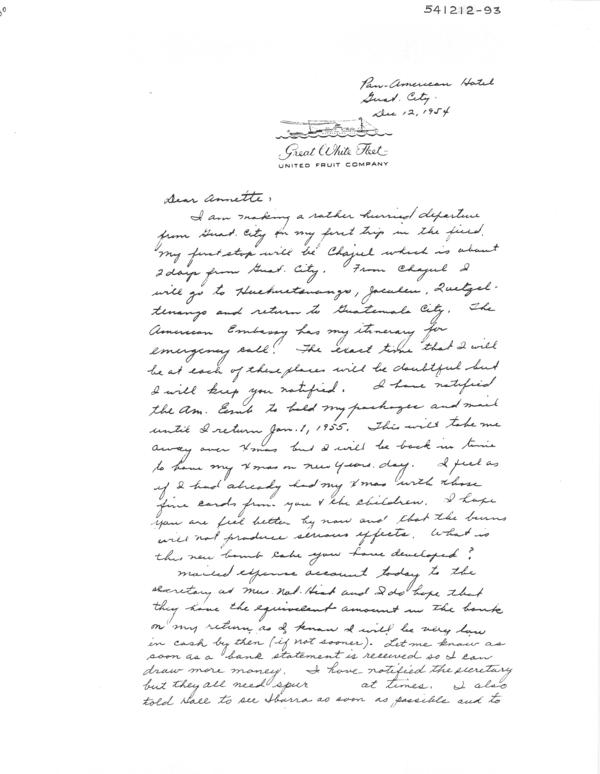 541212-93
Pan-American Hotel
Guat. City.
Dec 12, 1954
Great White Fleet
UNITED FRUIT COMPANY
Dear Annette,
I am making a rather hurried departure
from Guat. City on my first trip in the field.
My first stop will be Chajul which is about
2 days from Guat. City. From Chajul I
will go to Huehuetenango, Jacaltenango, Quetzal-
tenango and return to Guatemala City. The
American Embassy has my itinerary for
emergency call. The exact time that I will
be at each of these places will be doubtful but
I will keep you notified. I have notified
the Am. Emb to hold my packages and mail
until I return Jan. 1, 1955. This will take me
away over Xmas but I will be back in time
to have my Xmas on New Years day. I feel as
if I had already had my Xmas with those
fine cards from you & the children. I hope
you are feel better by now and that the burns
will not produce serious effects. What is
this new bomb cake you have developed?
Mailed expense account today to the
secretary at Mus. Nat. Hist and I do hope that
they have the equivelent amount in the bank
on my return as I know I will be very low
in cash by then (if not sooner). Let me know as
soon as a bank statement is received so I can
draw more money. I have notified the secretary
but they all need spur at times. I also
told Dale to see Ibarra as soon as possible and to